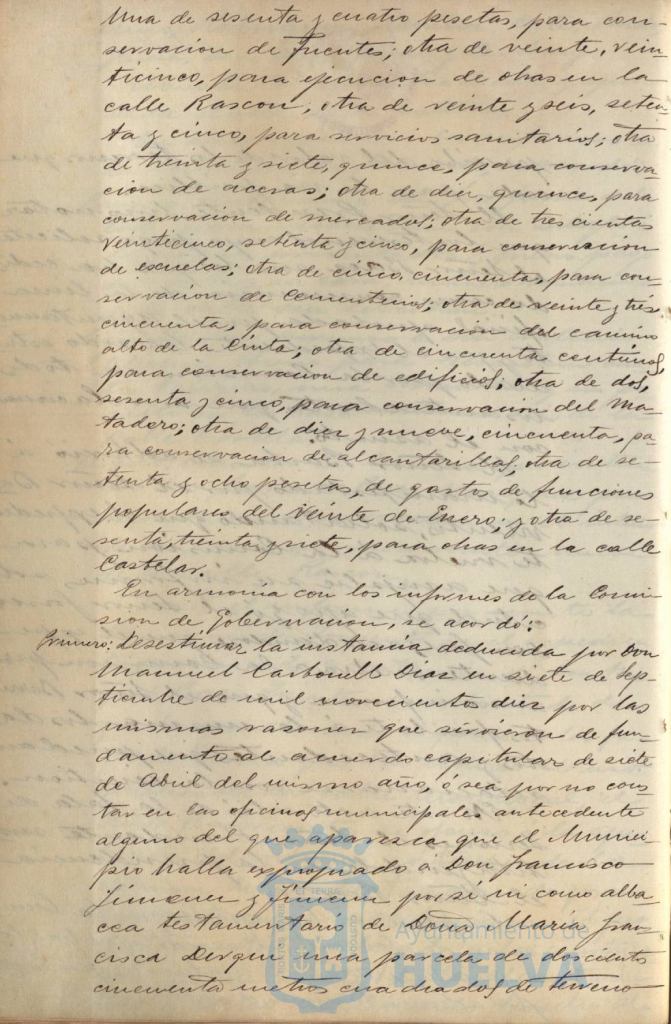 Una de sesenta y cuatro pesetas, para con-
servacion de Fuentes; otra de veinte, vein-
ticinco, para ejecucion de obras en la
calle Rascon; otra de veinte y seis, seten-
ta y cinco, para servicios sanitarios; otra
de treinta y siete, quince, para conserva-
cion de aceras; otra de diez, quince, para
conservacion de mercados; otra de trescientas
veinticinco, setenta y cinco, para conservacion
de escuelas; otra de cinco, cincuenta, para con-
servacion de Cementerios; otra de veinte y tres,
cincuenta, para conservacion del camino
alto de la Cinta; otra de cincuenta centimos,
para conservacion de edificios; otra de dos,
sesenta y cinco, para conservacion del Ma-
tadero; otra de diez y nueve, cincuenta, pa-
ra conservacion de alcantarillas; otra de se-
tenta y ocho pesetas, de gastos de funciones
populares del veinte de Enero; y otra de se-
senta, treinta y siete, para obras en la calle
Castelar.
En armonia con los informes de la Comi-
sion de Gobernacion, se acordó:
Primero: Desestimar la instancia deducida por Don
Manuel Carbonell Diaz en siete de Sep-
tiembre de mil novecientos diez por las
mismas razones que sirvieron de fun-
damento al acuerdo capitular de siete
de Abril del mismo año, ó sea por no cons-
tar en las oficinas municipales antecedente
alguno del que aparezca que el Munici-
pio halla expropiado á Don Francisco
Jimenez y Jimenez por sí ni como alba-
cea testamentario de Doña Maria Fran-
cisca Derqui una parcela de doscientos
cincuenta metros cuadrados de terreno
Ayuntamiento de
HUELVA